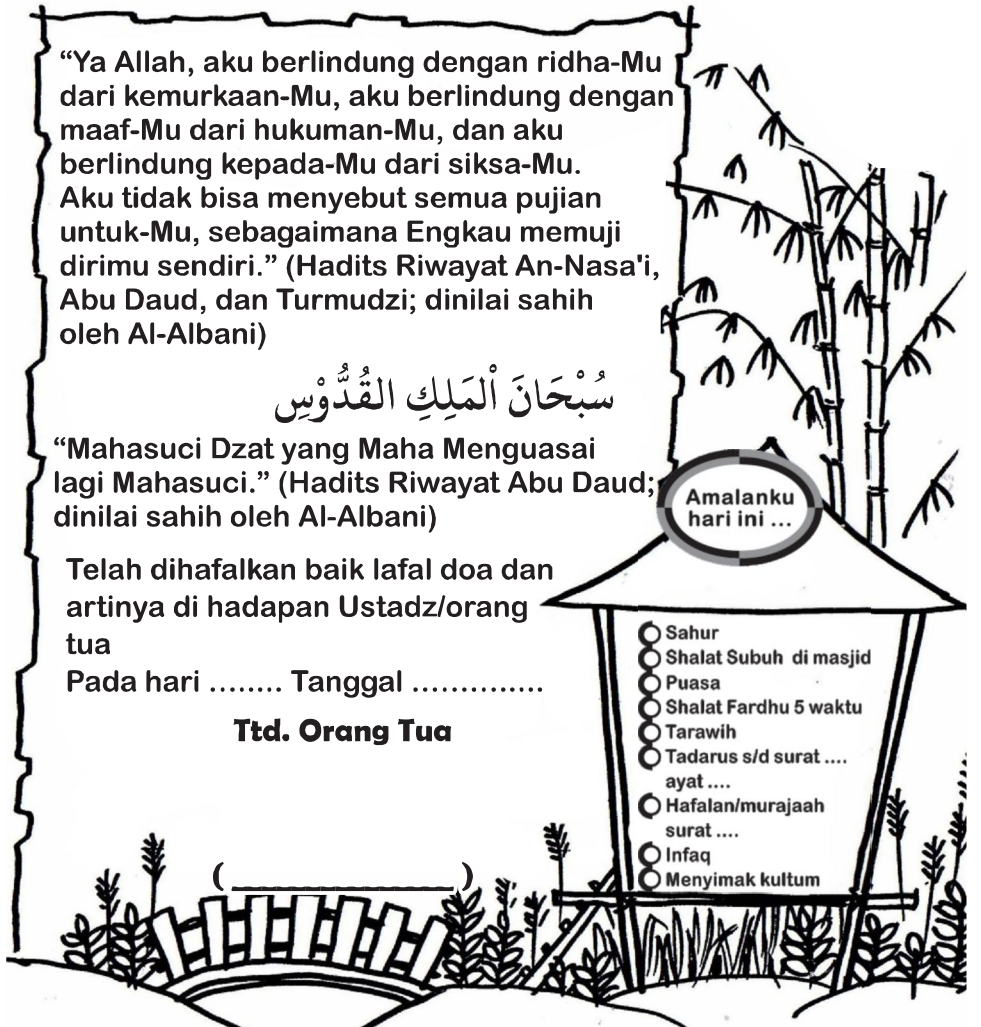 “Ya Allah, aku berlindung dengan ridha-Mu
dari kemurkaan-Mu, aku berlindung dengan
maaf-Mu dari hukuman-Mu, dan aku
berlindung kepada-Mu dari siksa-Mu.
Aku tidak bisa menyebut semua pujian
untuk-Mu, sebagaimana Engkau memuji
dirimu sendiri.” (Hadits Riwayat An-Nasa'i,
Abu Daud, dan Turmudzi; dinilai sahih
oleh Al-Albani)
سُبْحَانَ اْلمَلِكِ القُدُّوْسِ
“Mahasuci Dzat yang Maha Menguasai
lagi Mahasuci.” (Hadits Riwayat Abu Daud;
dinilai sahih oleh Al-Albani)
Telah dihafalkan baik lafal doa dan
artinya di hadapan Ustadz/orang
tua
Pada hari ........ Tanggal ..............
Ttd. Orang Tua
( ________________ )
Amalanku
hari ini ...
Sahur
Shalat Subuh di masjid
Puasa
Shalat Fardhu 5 waktu
Tarawih
Tadarus s/d surat ....
ayat ....
Hafalan/murajaah
surat ....
Infaq
Menyimak kultum